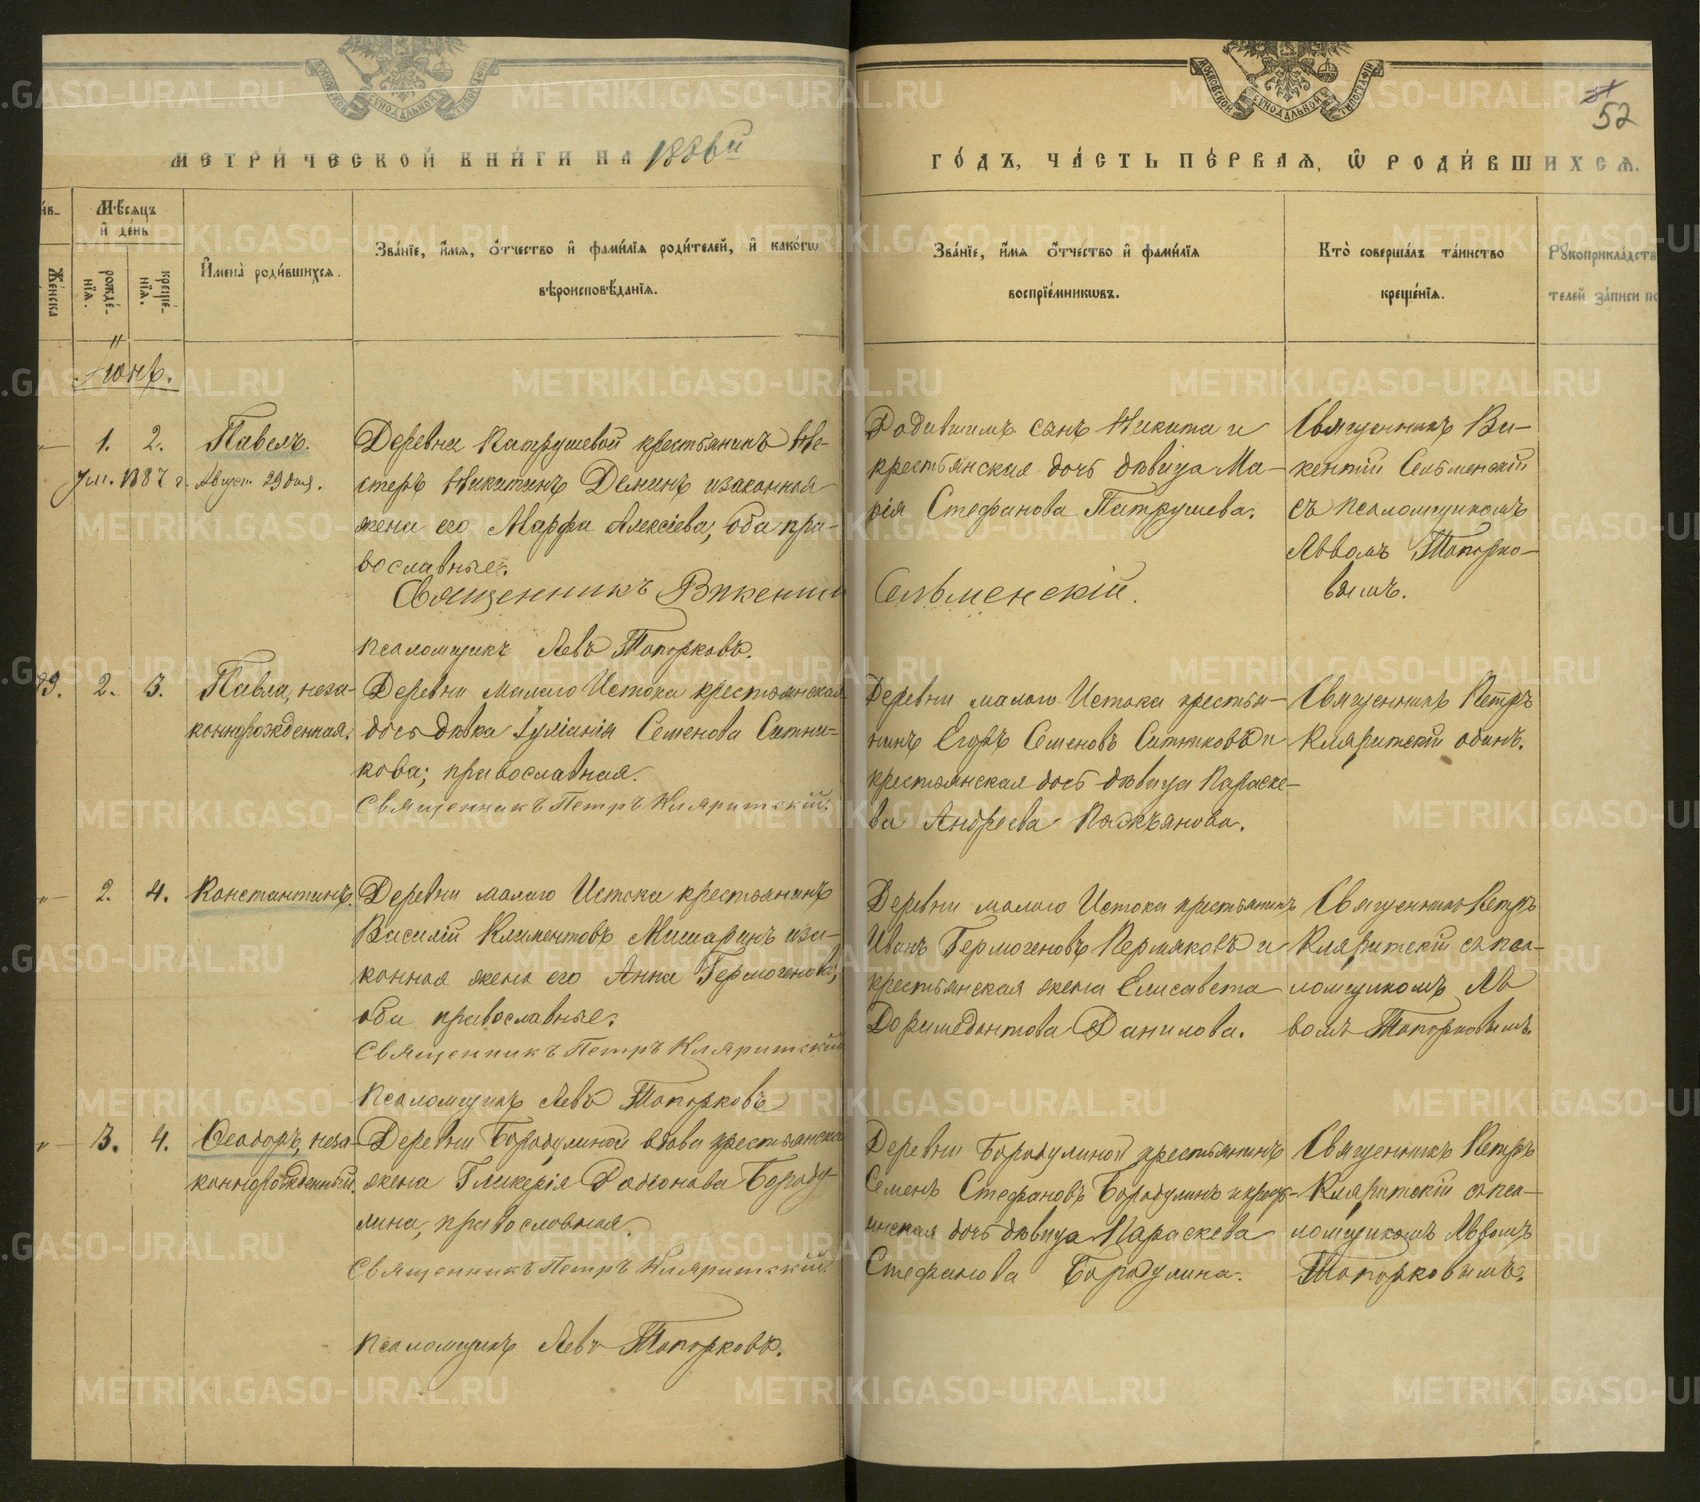 52
МЕТРИ́ЧЕСКОЙ КНИ́ГИ НА 1886й
ГО́ДЪ, ЧА́СТЬ ПЕ́РВАѦ, Ѽ РОДИ́ВШИХСѦ.
Мѣсяцъ и́ де́нь
Же́нска
рожде́нїя.
креще́нїя.
И҆мена̀ роди́вшихся.
Зва́нїе, и҆́мя, ѻ҆́тчество и҆ фами́лїя роди́телей, и҆ како́гѡ
вѣроисповѣ́данїя.
Зва́нїе, и҆́мя ѻ҆́тчество и҆ фами́лїя
воспрїе́мникѡвъ.
Кто̀ соверша́лъ та́инство
креще́нїя.
Рꙋкоприкла́дств
телей за́писи по
Іюнь.
1. 2. Павелъ.
Ум. 1887 г. Август 29 дня.
Деревни Патрушевой крестьянинъ Не-
стеръ Никитинъ Деминъ и законная
жена его Марфа Алексіева; оба пра-
вославные.
Священникъ Викентій Сельменскій.
Псаломщикъ Левъ Топорковъ.
Родившимъ сынъ Никита и
крестьянская дочь дѣвица Ма-
рія Стефанова Патрушева.
Священникъ Ви-
кентій Сельменскій
съ псаломщикомъ
Львомъ Топорко-
вымъ.
2. 3. Павла, неза-
коннорожденная.
Деревни Малаго Истока крестьянская
дочь дѣвка Іуліанія Семенова Ситни-
кова; православная.
Священникъ Петръ Кляритскій.
Деревни малаго Истока крестья-
нинъ Егоръ Семеновъ Ситниковъ и
крестьянская дочь дѣвица Параске-
ва Андреева
Священникъ Петръ
Кляритскій одинъ.
2. 4. Константинъ.
Деревни малаго Истока крестьянинъ
Василій Климентовъ Мишаринъ и за-
конная жена его Анна Гермогенова;
оба православные.
Священникъ Петръ Кляритскій
Псаломщикъ Левъ Топорковъ
Деревни малаго Истока крестьянинъ
Иванъ Гермогеновъ Пермяковъ и
крестьянская жена Елисавета
Доримедонтова Данилова.
Священникъ Петръ
Кляритскій съ пса-
ломщикомъ Ль
вомъ Топорковымъ
3. 4. Ѳеодоръ, неза-
коннорожденный.
Деревни Бородулиной вдова крестьянская
жена Гликерія Родіонова Бороду-
лина, православная.
Священникъ Петръ Кляритскій.
Псаломщикъ Левъ Топорковъ.
Деревни Бородулиной крестьянинъ
Семенъ Стефановъ Бородулинъ и крест-
янская дочь дѣвица Параскева
Стефанова Бородулина.
Священникъ Петръ
Кляритскій съ пса-
ломщикомъ Львомъ
Топорковымъ.